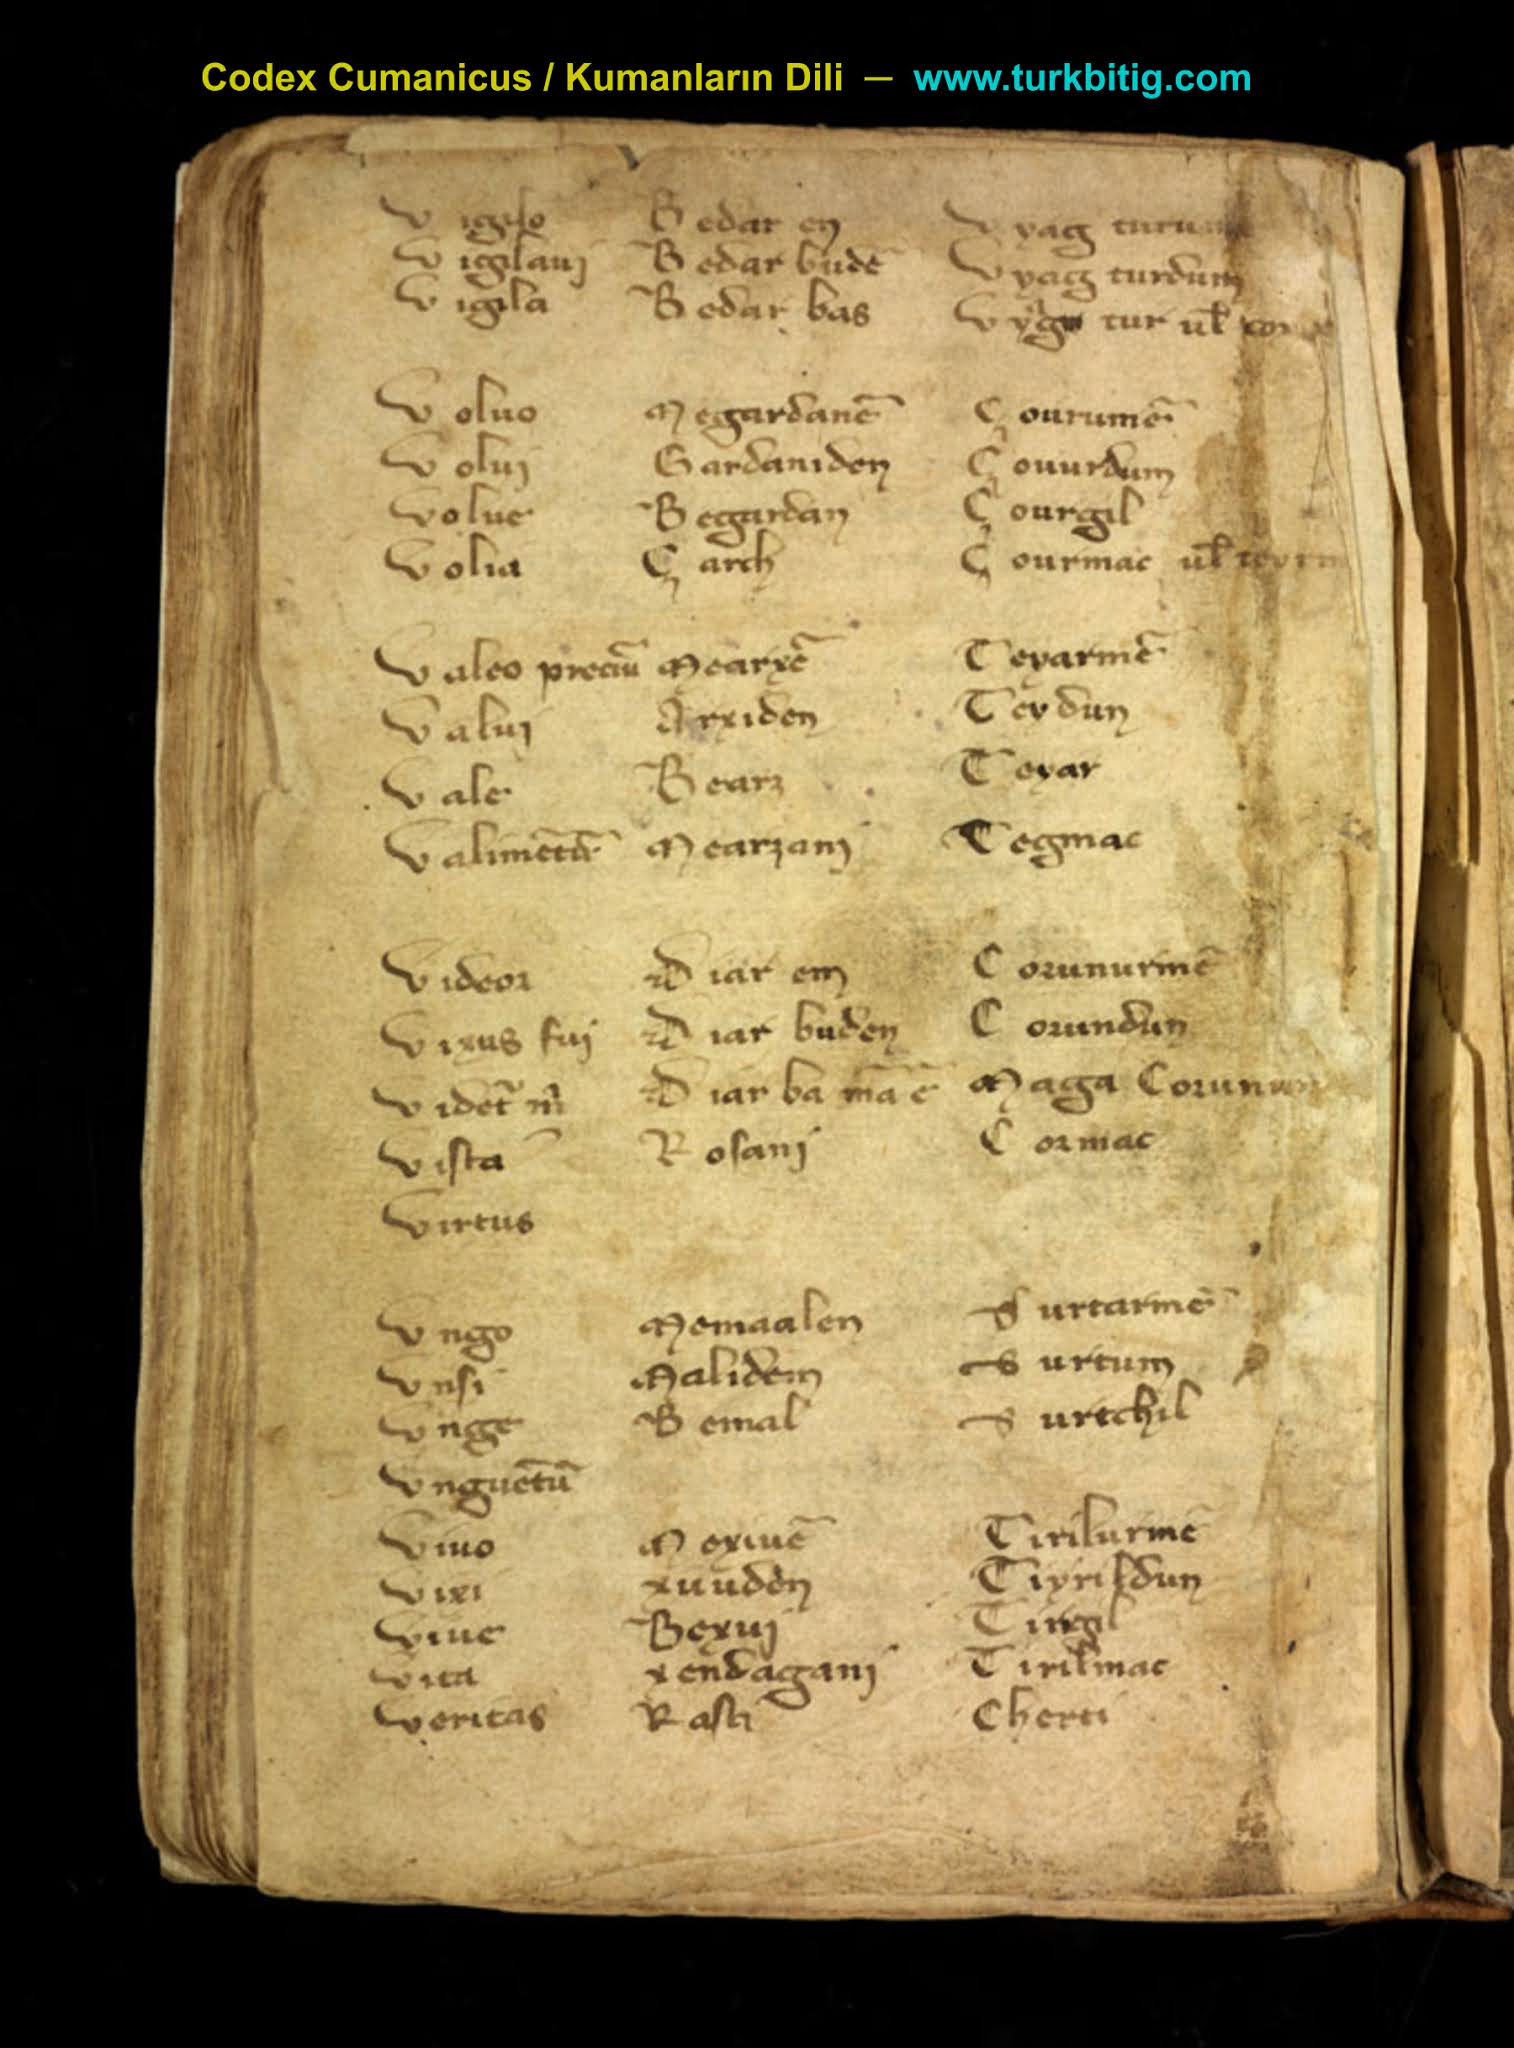 Codex Cumanicus / Kumanların Dili — www.turkbitig.com
Vigilo Bedar en Vyag
Vigilaui Bedar budē Vyag turdum
Vigila Bedar bas tur ul̄
Voluo Megardanē Çourumē
Volui Gardaniden Çouurdum
Volue Begardan Çourgil
Volta Çarch Çourmac ul̄
Valeo preciū Mearxē Teyarmē
Valui Arxiden Teydun
Vale Bearz Teyar
Valimētū Mearzani Tegmac
Videor Diar em Corunurmē
Vixus fui Diar buden Corundun
Diar ba mā ē Maga
Vista Rosani Cormac
Virtus
Vngo Memaalen Surtarmē
Vnsi Malidem Surtum
Vnge Bemal Surtchil
Vnguētū
Viuo Mexiuē Tirilurmē
Vixi xuuden Tiyrildun
Viue Bexui Tirgil
Vita xendagani Tirilmac
Veritas Rasti Cherti